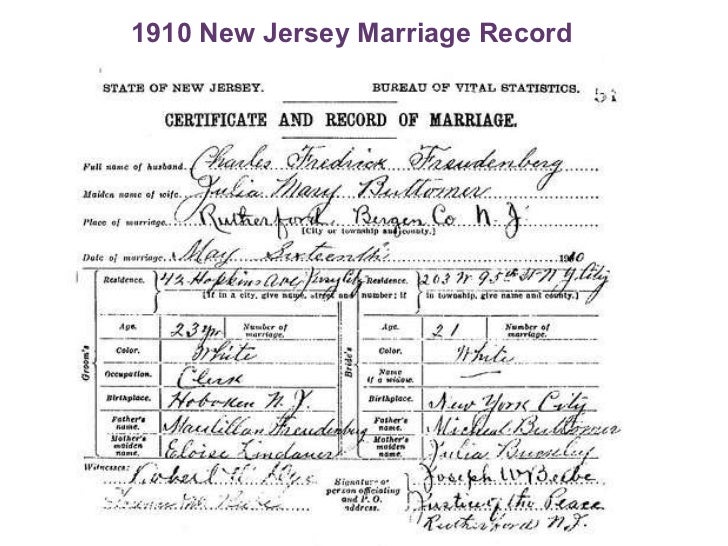 1910 New Jersey Marriage Record
STATE OF NEW JERSEY. BUREAU OF VITAL STATISTICS. 51
CERTIFICATE AND RECORD OF MARRIAGE.
Full name of husband. Charles Fredrick Freudenberg
Maiden name of wife. Julia Mary Buttomer
Place of marriage. Rutherford, Bergen Co N. J.
[City or township and county.]
Date of marriage. May Sixteenth 1910
Residence. 42 Hopkins Ave Jersey City Residence. 203 W 95th St N Y City
[If in a city, give name, street and number; if in township, give name and county.]
Groom's Bride's
Age. 23 yrs Number of marriage. Age. 21 Number of marriage.
Color. White Color. White
Occupation. Clerk Name if a widow. —
Birthplace. Hoboken N. J. Birthplace. New York City
Father's name. Maxtillan Freudenburg Father's name. Micheal Buttomer
Mother's maiden name. Eloise Lindauer Mother's maiden name. Julia
Witnesses: Robert Signature of person officiating and P. O. address. Joseph W Beebe
Justice of the Peace
Rutherford N. J.